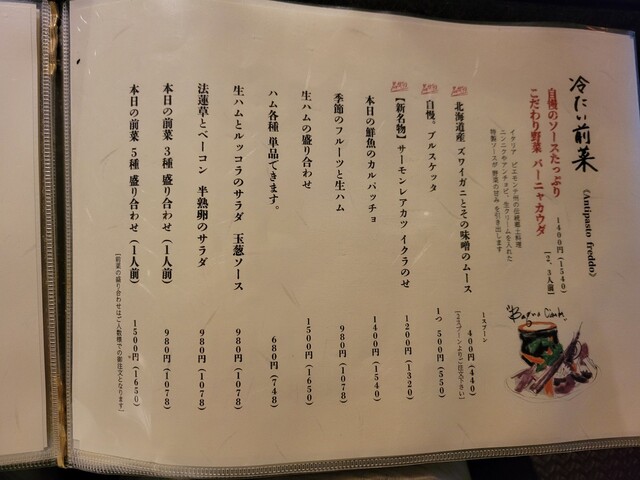 冷たい前菜 《Antipasto freddo》
自慢のソースたっぷり
こだわり野菜 バーニャカウダ
1400円 (1540)
[2、3人前]
イタリア ピエモンテ州の伝統郷土料理
ニンニクやアンチョビ、生クリームを入れた
特製ソースが 野菜の甘み を引き出します
北海道産 ズワイガニとその味噌のムース
1スプーン 400円 (440)
(2スプーンよりご注文下さい)
自慢。ブルスケッタ 1つ 500円 (550)
【新名物】サーモンレアカツ イクラのせ 1200円 (1320)
本日の鮮魚のカルパッチョ 1400円 (1540)
季節のフルーツと生ハム 980円 (1078)
生ハムの盛り合わせ 1500円 (1650)
ハム各種 単品できます。 680円 (748)
生ハムとルッコラのサラダ 玉葱ソース 980円 (1078)
法蓮草とベーコン 半熟卵のサラダ 980円 (1078)
本日の前菜 3種 盛り合わせ (1人前) 980円 (1078)
本日の前菜 5種 盛り合わせ (1人前) 1500円 (1650)
[前菜の盛り合わせはご人数様での御注文となります]